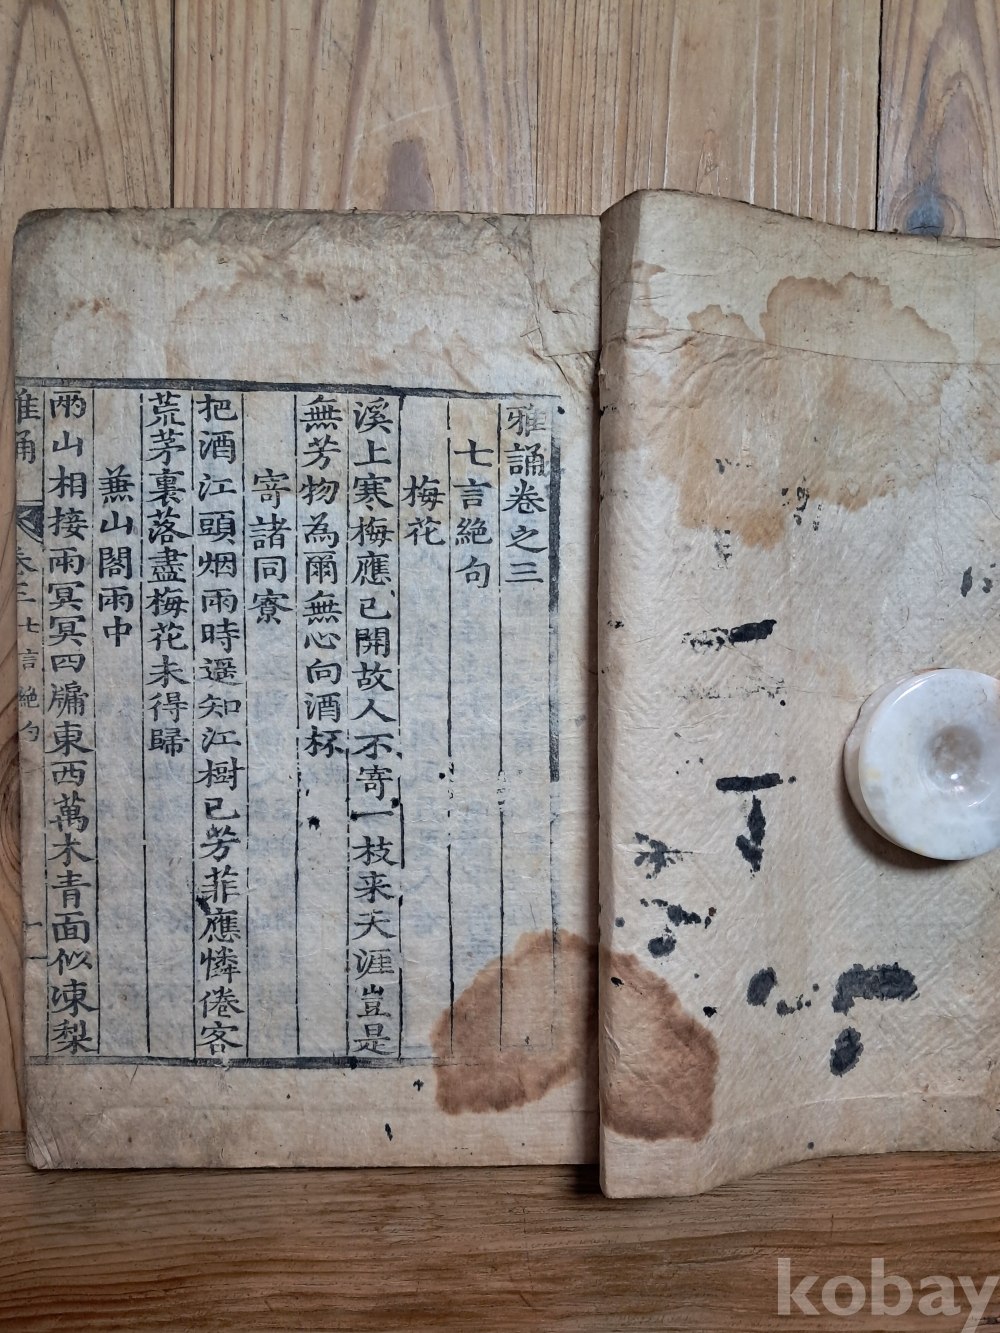 雅誦卷之三
七言絶句
梅花
溪上寒梅應已開故人不寄一枝来天涯豈是
無芳物為爾無心向酒杯
寄諸同寮
把酒江頭烟雨時遥知江樹已芳菲應憐倦客
荒茅裏落盡梅花未得歸
蕪山閣雨中
兩山相接雨冥冥四牖東西萬木青面似凍梨
雅誦 卷三 七言絶句
kobay